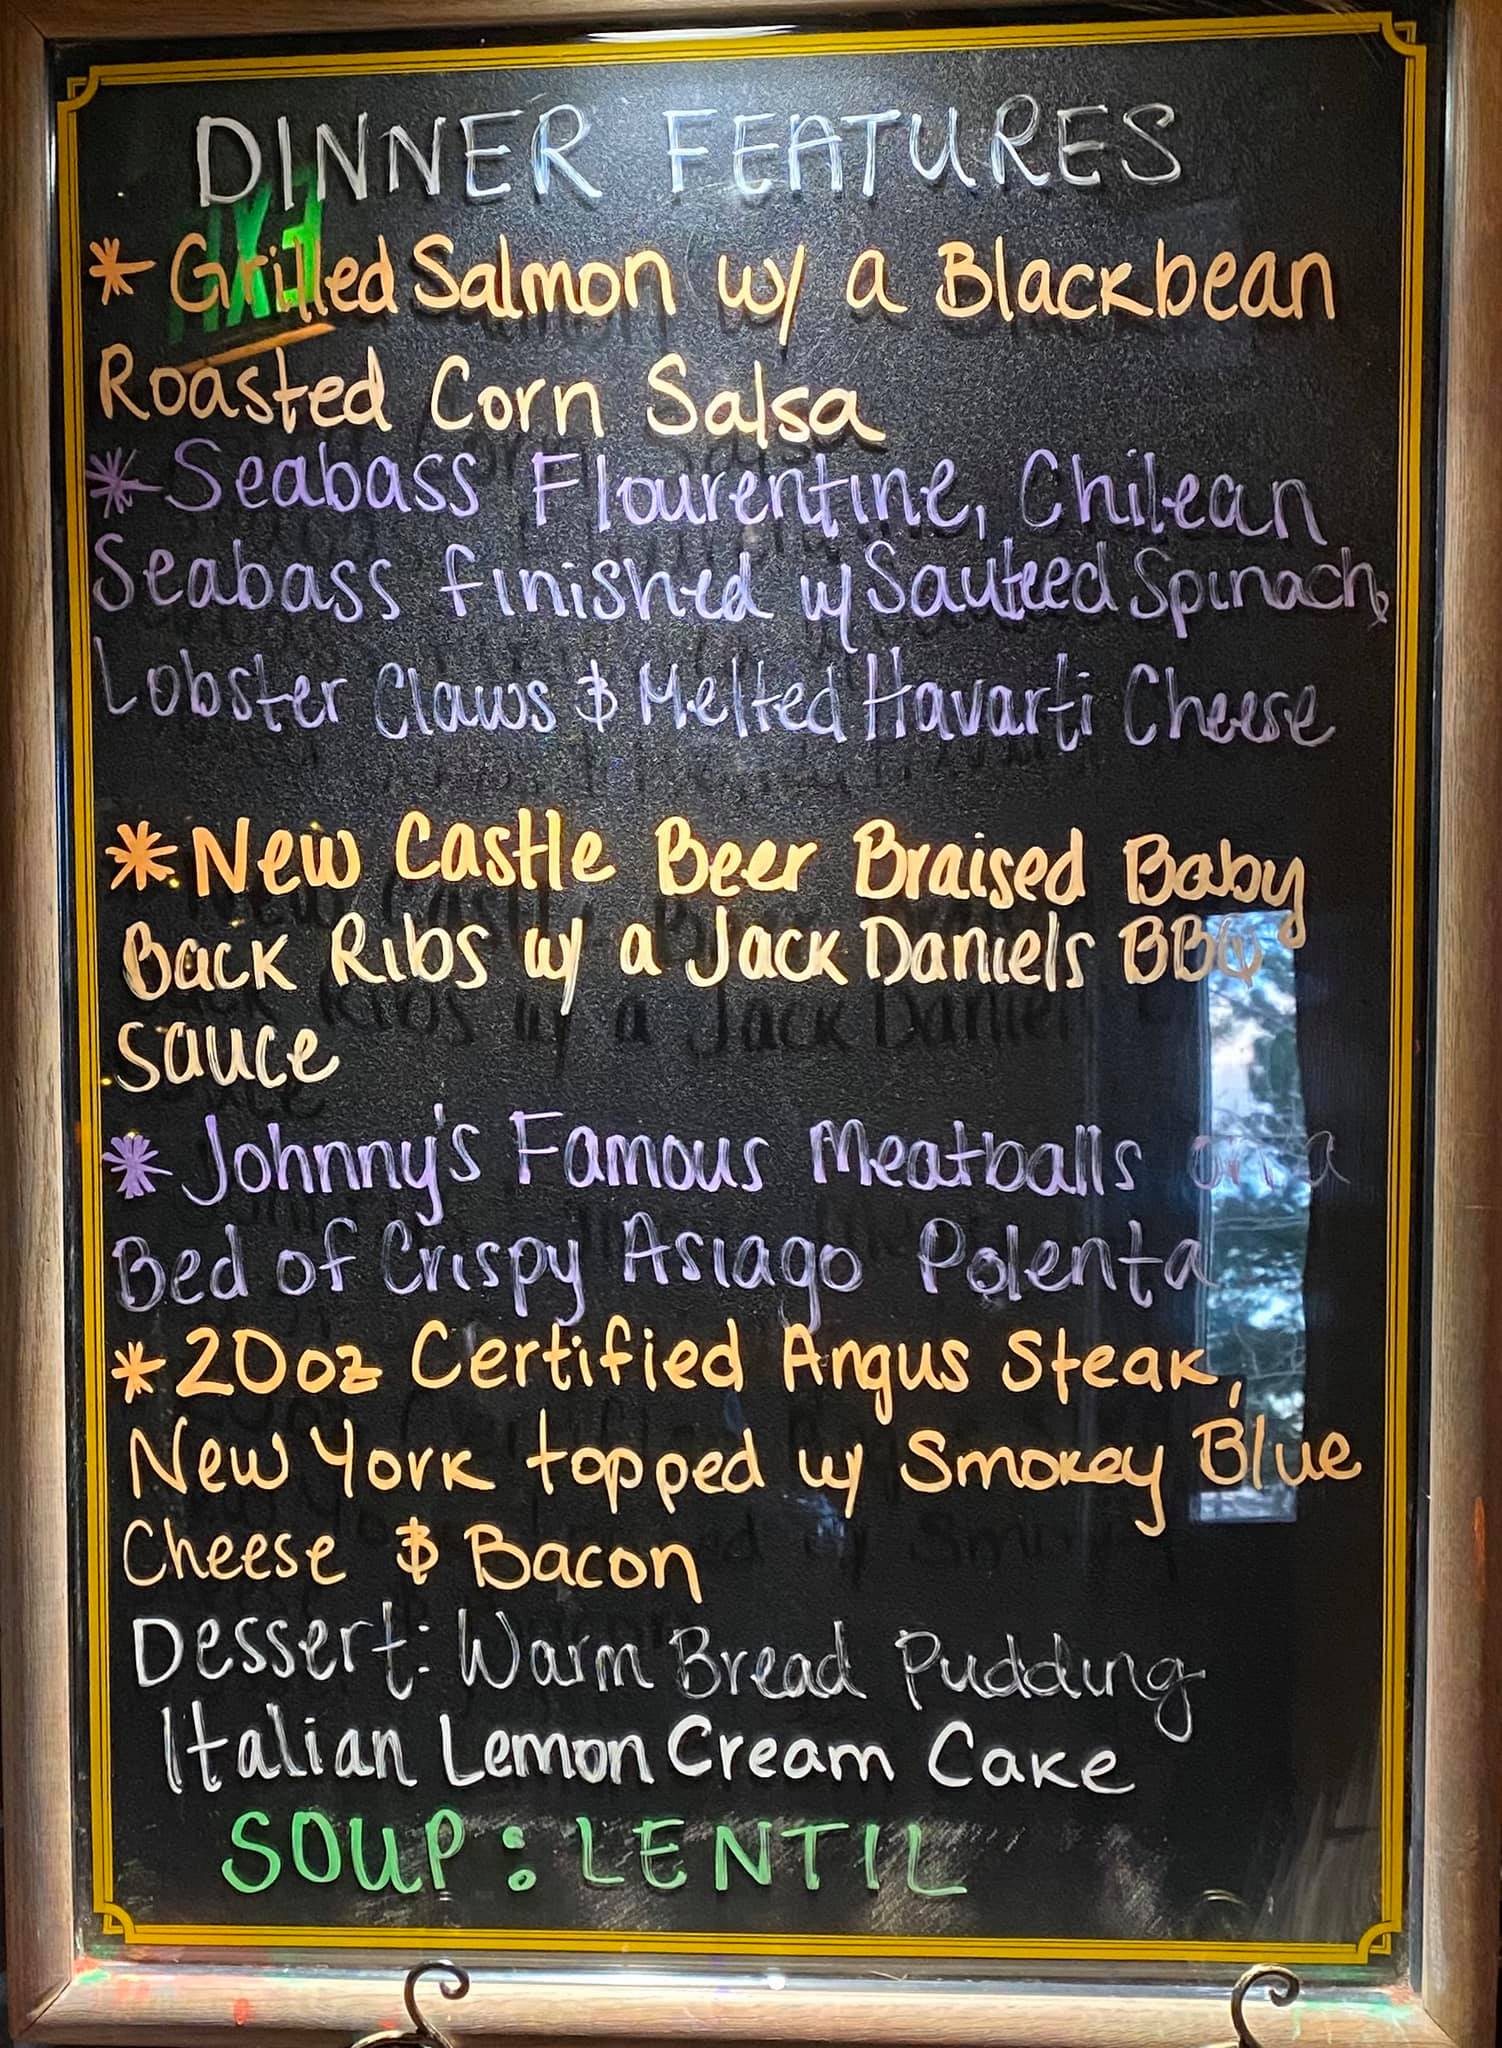 DINNER FEATURES
* Grilled Salmon w/ a Blackbean
Roasted Corn Salsa
* Seabass Flourentine, Chilean
Seabass finished w/ Sauteed Spinach,
Lobster Claws & Melted Havarti Cheese
* New Castle Beer Braised Baby
Back Ribs w/ a Jack Daniels BBQ
Sauce
* Johnny's Famous Meatballs on a
Bed of Crispy Asiago Polenta
* 20oz Certified Angus Steak,
New York topped w/ Smokey Blue
Cheese & Bacon
Dessert: Warm Bread Pudding
Italian Lemon Cream Cake
SOUP: LENTIL